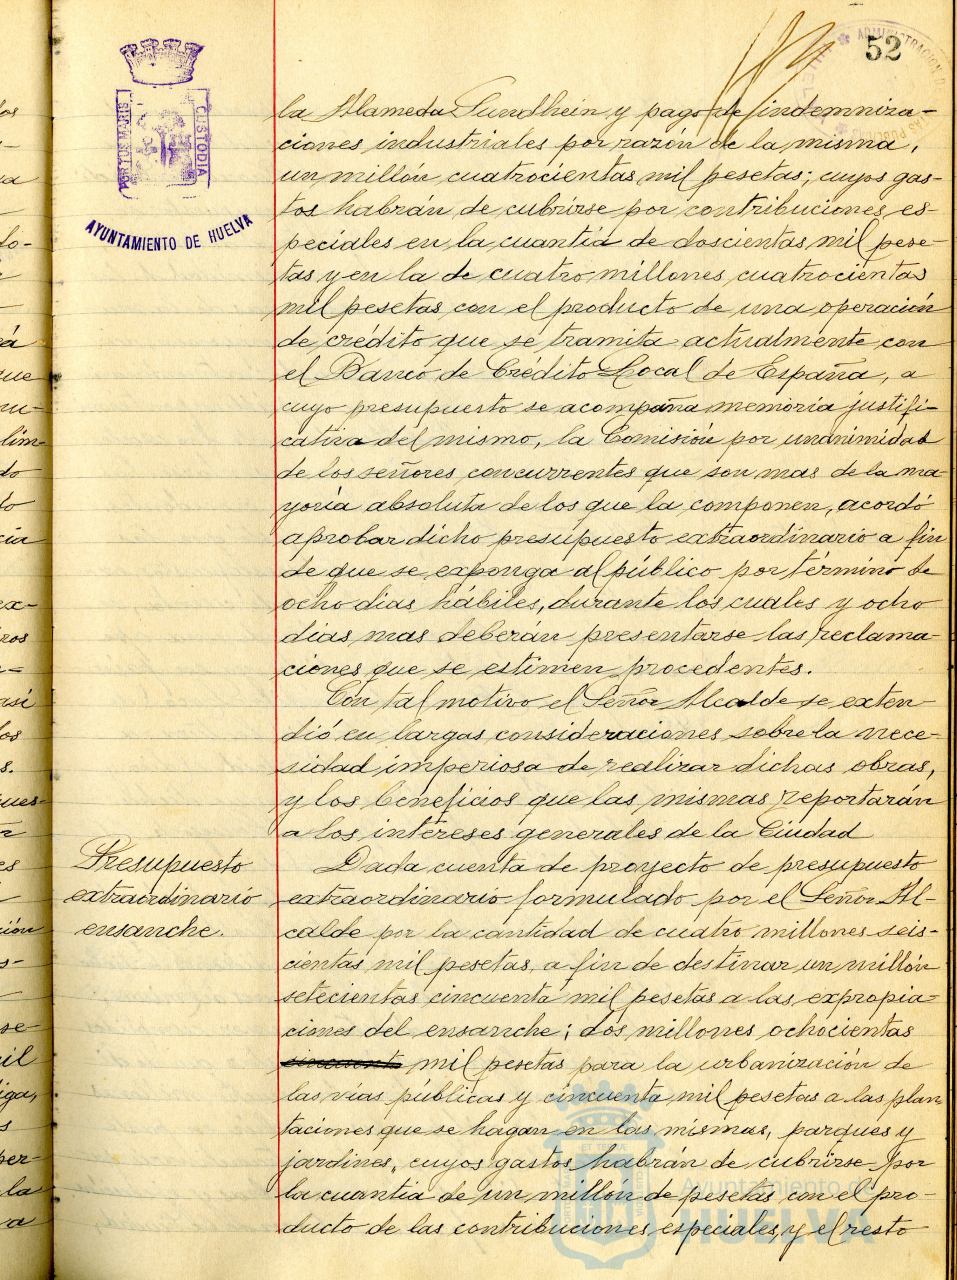 52
PORTUS MARIS
CUSTODIA
AYUNTAMIENTO DE HUELVA
la Alameda Sundhein y pago de indemniza-
ciones industriales por razón de la misma,
un millón cuatrocientas mil pesetas; cuyos gas-
tos habrán de cubrirse por contribuciones es-
peciales en la cuantía de doscientas mil pese-
tas y en la de cuatro millones cuatrocientas
mil pesetas con el producto de una operación
de crédito que se tramita actualmente con
el Banco de Crédito Local de España, a
cuyo presupuesto se acompaña memoria justifi-
cativa del mismo, la Comisión por unanimidad
de los señores concurrentes que son mas de la ma-
yoría absoluta de los que la componen, acordó
aprobar dicho presupuesto extraordinario a fin
de que se exponga al público por término de
ocho dias hábiles, durante los cuales y ocho
dias mas deberán presentarse las reclama-
ciones que se estimen procedentes.
Con tal motivo el Señor Alcalde se exten-
dió en largas consideraciones sobre la nece-
sidad imperiosa de realizar dichas obras,
y los beneficios que las mismas reportarán
a los intereses generales de la Ciudad
Presupuesto
extraordinario
ensanche.
Dada cuenta de proyecto de presupuesto
extraordinario formulado por el Señor Al-
calde por la cantidad de cuatro millones seis-
cientas mil pesetas, a fin de destinar un millón
setecientas cincuenta mil pesetas a las expropia-
ciones del ensanche; dos millones ochocientas
mil pesetas para la urbanización de
las vías públicas y cincuenta mil pesetas a las plan-
taciones que se hagan en las mismas, parques y
jardines, cuyos gastos habrán de cubrirse por
la cuantia de un millón de pesetas con el pro-
ducto de las contribuciones especiales, y el resto
Ayuntamiento de
HUELVA